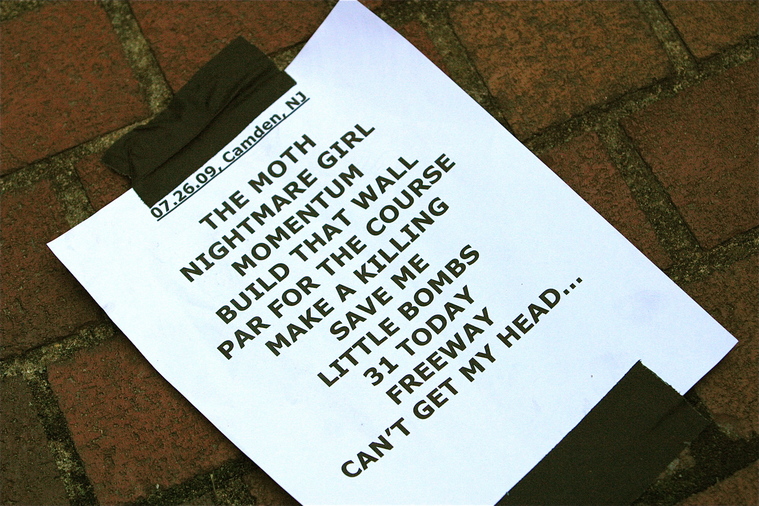 07.26.09, Camden, NJ
THE MOTH
NIGHTMARE GIRL
MOMENTUM
BUILD THAT WALL
PAR FOR THE COURSE
MAKE A KILLING
SAVE ME
LITTLE BOMBS
31 TODAY
FREEWAY
CAN'T GET MY HEAD...